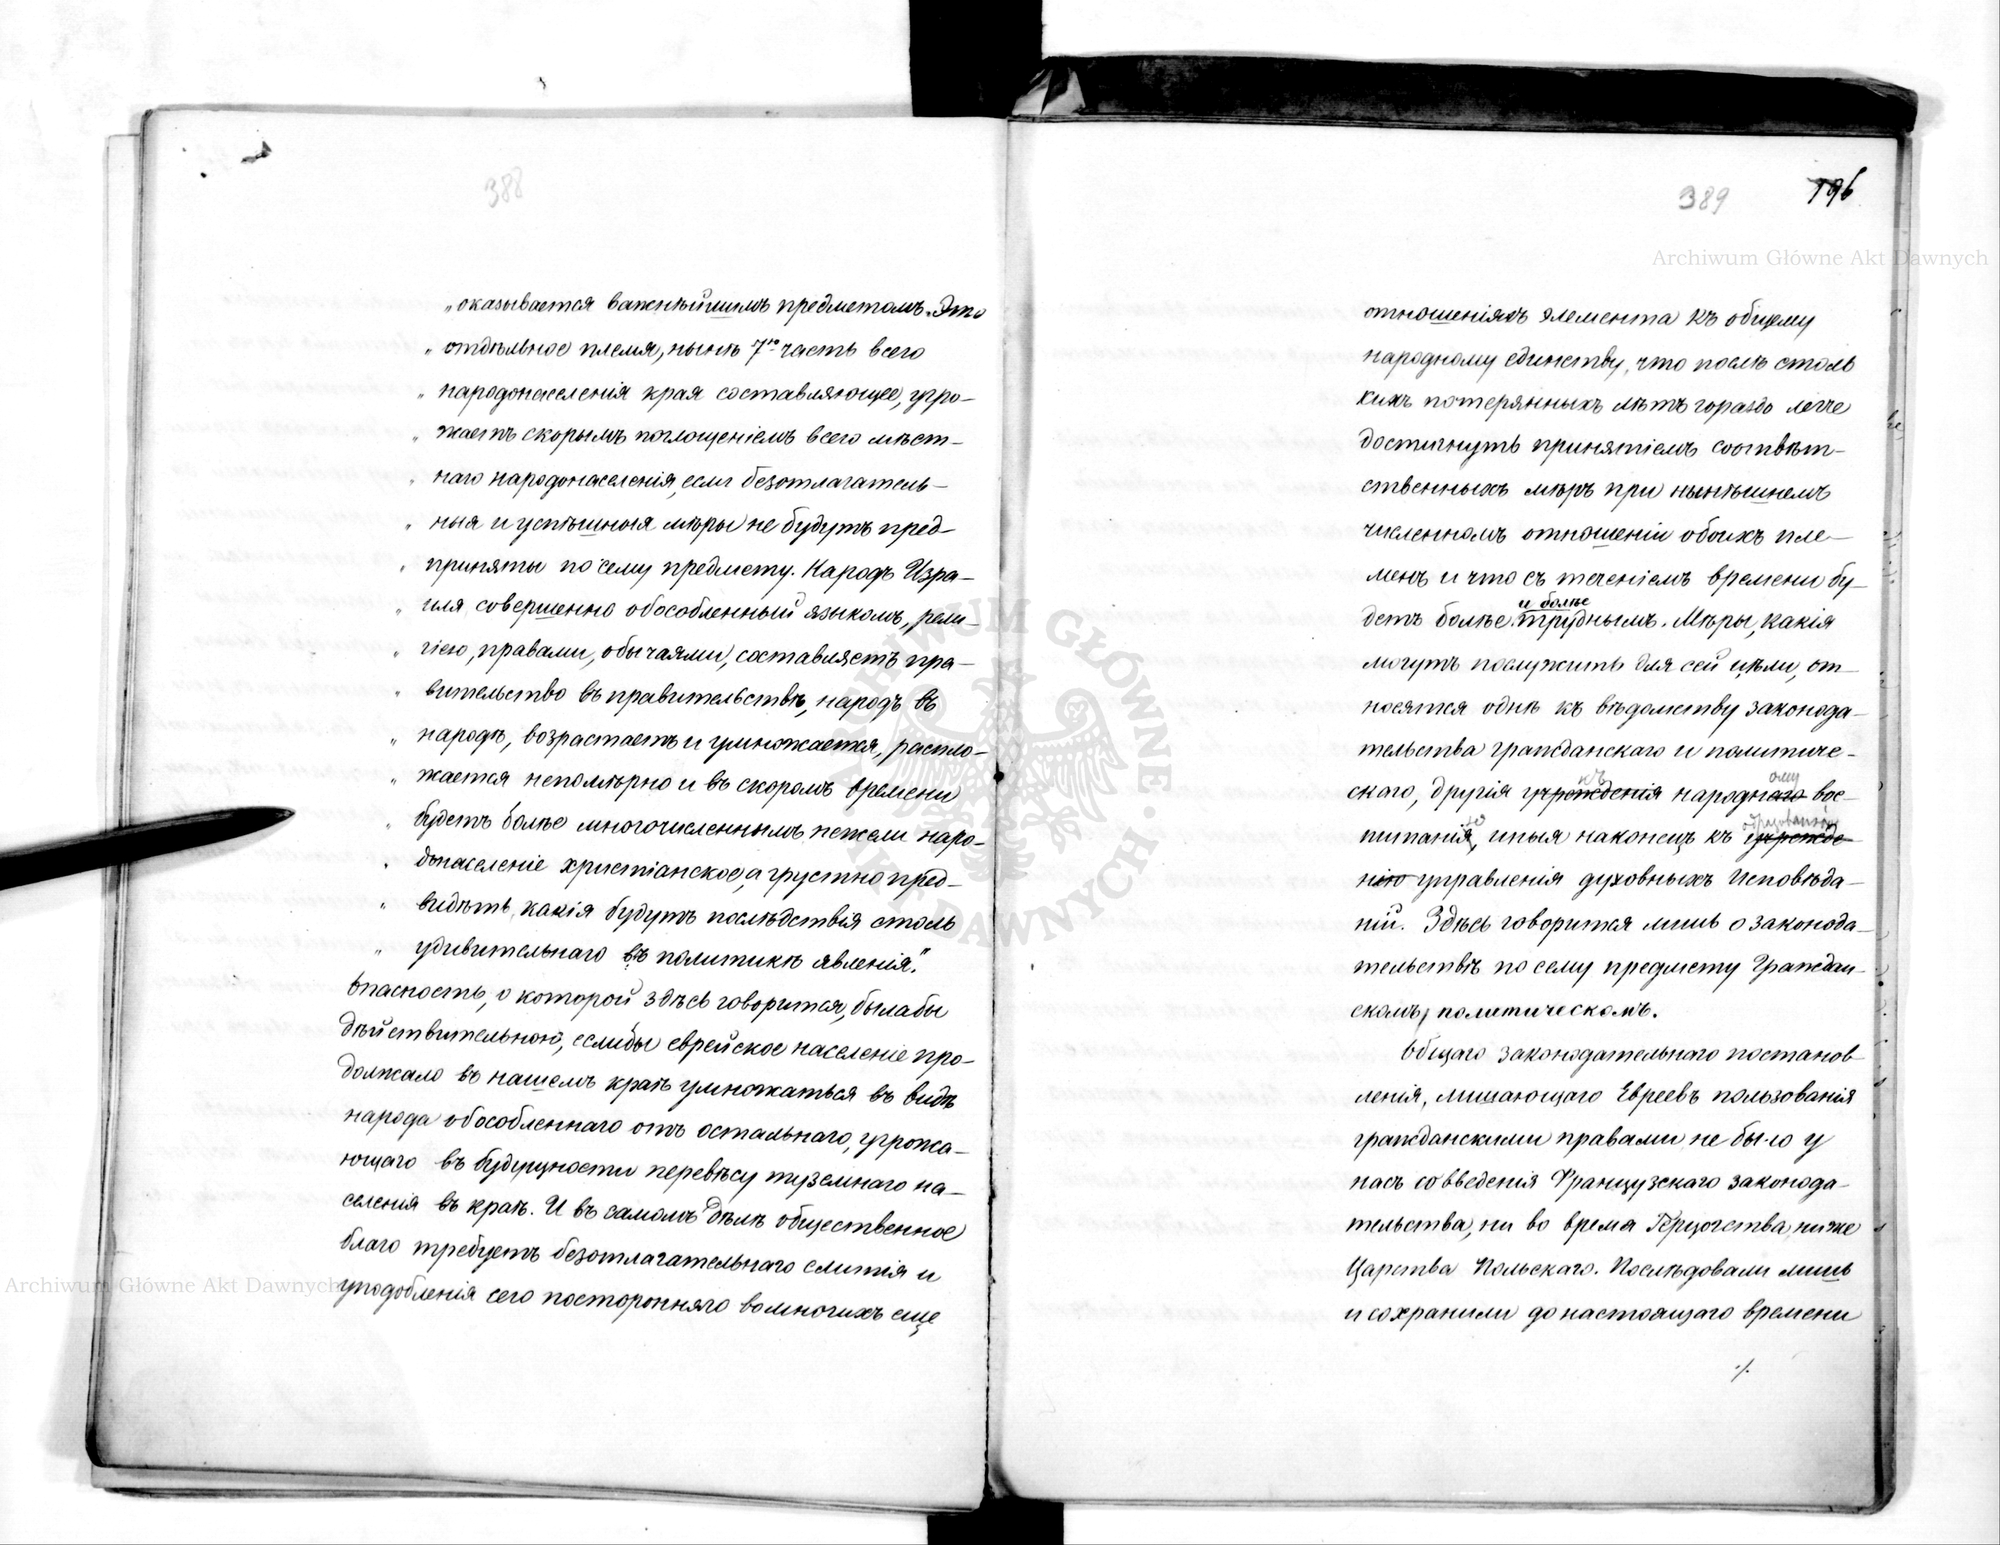 388
„оказывается важнѣйшимъ предметомъ. Это
„ отдѣльное племя, нынѣ 7ю часть всего
„ народонаселенія края составляющее, угро-
„ жаетъ скорымъ поглощеніемъ всего мѣст-
„ наго народонаселенія, если безотлагатель-
„ ныя и успѣшныя мѣры не будутъ пред-
„ приняты по сему предмету. Народъ Изра-
„ иля совершенно обособленный языкомъ, рели-
„ гіею, правами, обычаями, составляетъ пра-
„ вительство въ правительствѣ, народъ въ
„ народѣ, возрастаетъ и умножается, распло-
„ жается непомѣрно и въ скоромъ времени
„ будетъ болѣе многочисленнымъ нежели наро-
„ донаселеніе христіанское, а грустно пред-
„ видѣть, какія будутъ послѣдствія столь
„ удивительнаго въ политикѣ явленія“.
Опасность, о которой здѣсь говорится, была бы
дѣйствительной, еслибы еврейское населеніе про-
должало въ нашемъ краѣ умножаться въ видѣ
народа обособленнаго отъ остальнаго, угрожа-
ющаго въ будущности перевѣсу туземнаго на-
селенія въ краѣ. И въ самомъ дѣлѣ общественное
благо требуетъ безотлагательнаго слитія и
уподобленія сего посторонняго во многихъ еще
389 196
отношеніяхъ элемента къ общему
народному единству, что послѣ столь
кихъ потерянныхъ лѣтъ гораздо легче
достигнуть принятіемъ соотвѣт-
ственныхъ мѣръ при нынѣшнемъ
численномъ отношеніи обоихъ пле-
менъ и что съ теченіемъ времени бу-
и болѣе
детъ болѣе труднымъ. Мѣры, какія
могутъ послужить для сей цѣли, от-
носятся однѣ къ вѣдомству законода-
тельства гражданскаго и политиче-
къ ому
скаго, другія учрежденія народнаго вос-
ю образованію
питанія, иныя наконецъ къ учрежде-
нію управленія духовныхъ Исповѣда-
ній. Здѣсь говорится лишь о законода-
тельствѣ по сему предмету Граждан-
скомъ, политическомъ.
Общаго законодательнаго постанов-
ленія, лишающаго Евреевъ пользованія
гражданскими правами не было у
насъ со введенія Французскаго законода-
тельства, ни во время Герцогства, ниже
Царства Польскаго. Послѣдовали лишь
и сохранили до настоящаго времени
./.
Archiwum Główne Akt Dawnych
Archiwum Główne Akt Dawnych
ARCHIWUM GŁÓWNE AKT DAWNYCH